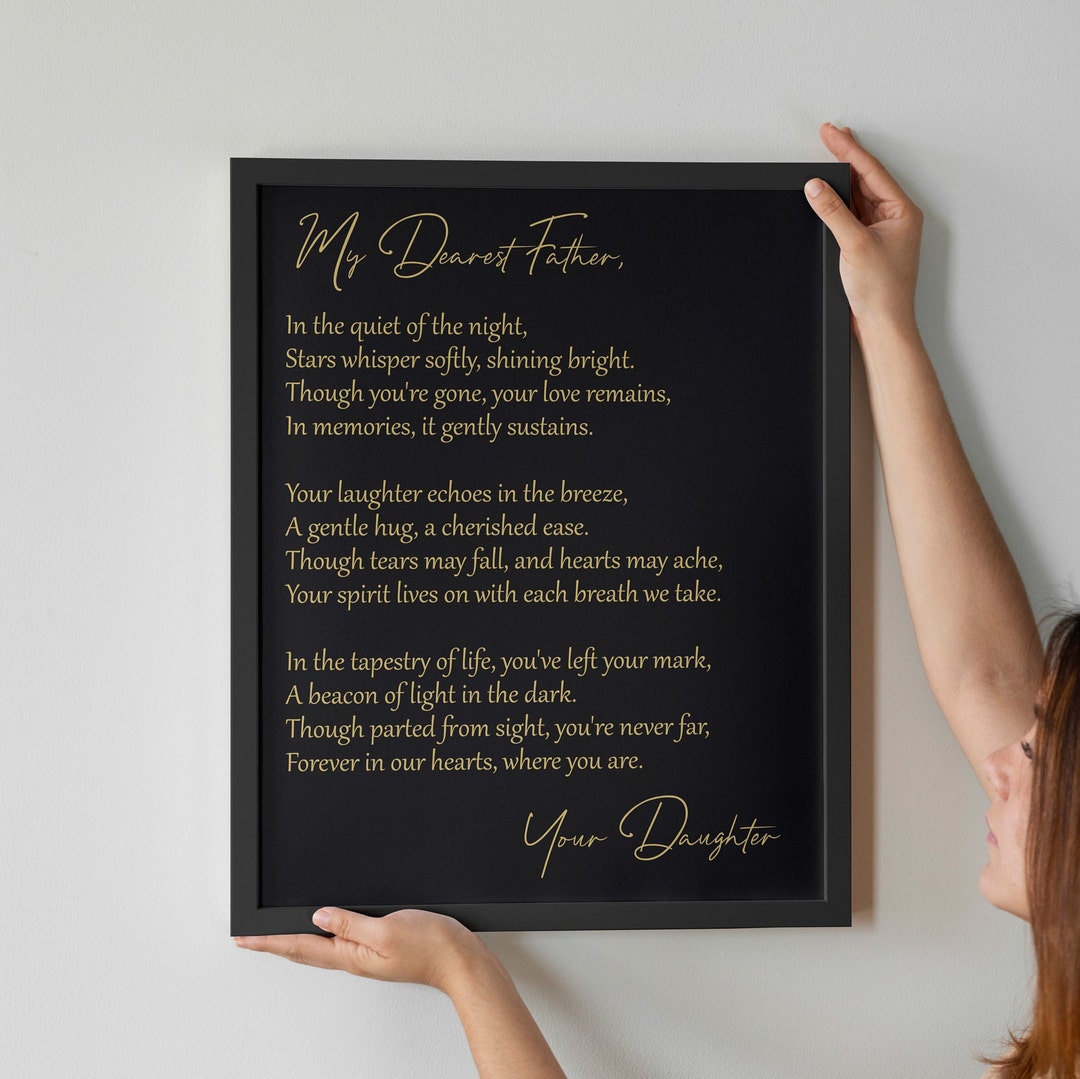 My Dearest Father,
In the quiet of the night,
Stars whisper softly, shining bright.
Though you're gone, your love remains,
In memories, it gently sustains.
Your laughter echoes in the breeze,
A gentle hug, a cherished ease.
Though tears may fall, and hearts may ache,
Your spirit lives on with each breath we take.
In the tapestry of life, you've left your mark,
A beacon of light in the dark.
Though parted from sight, you're never far,
Forever in our hearts, where you are.
Your Daughter